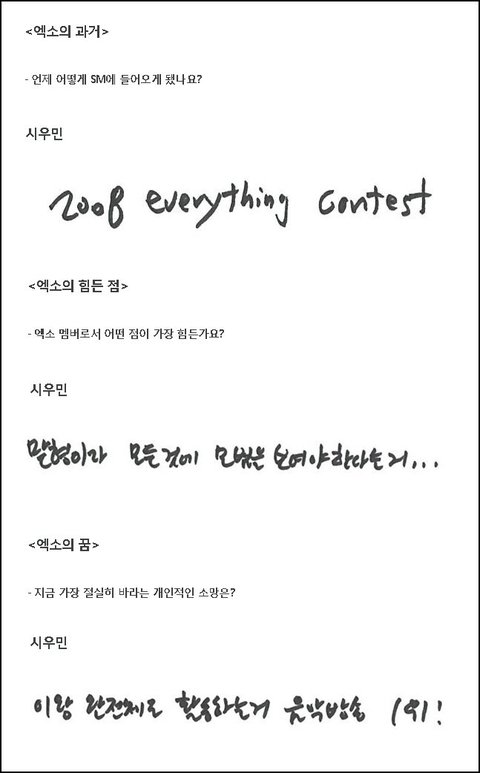 <엑소의 과거>
- 언제 어떻게 SM에 들어오게 됐나요?
시우민
2008 everything contest
<엑소의 힘든 점>
- 엑소 멤버로서 어떤 점이 가장 힘든가요?
시우민
맏형이라 모든것에 모범을 보여야한다는거...
<엑소의 꿈>
- 지금 가장 절실히 바라는 개인적인 소망은?
시우민
이왕 완전체로 활동하는거 음악방송 1위!